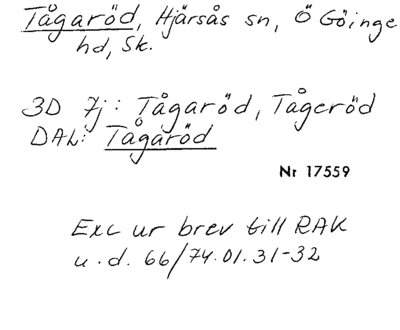 Tågaröd, Hjärsås sn, Ö Göinge
hd, Sk.
3D 7j: Tågaröd, Tågeröd
DAL: Tågaröd
Nr 17559
Exc ur brev till RAK
u.d. 66/74.01.31-32